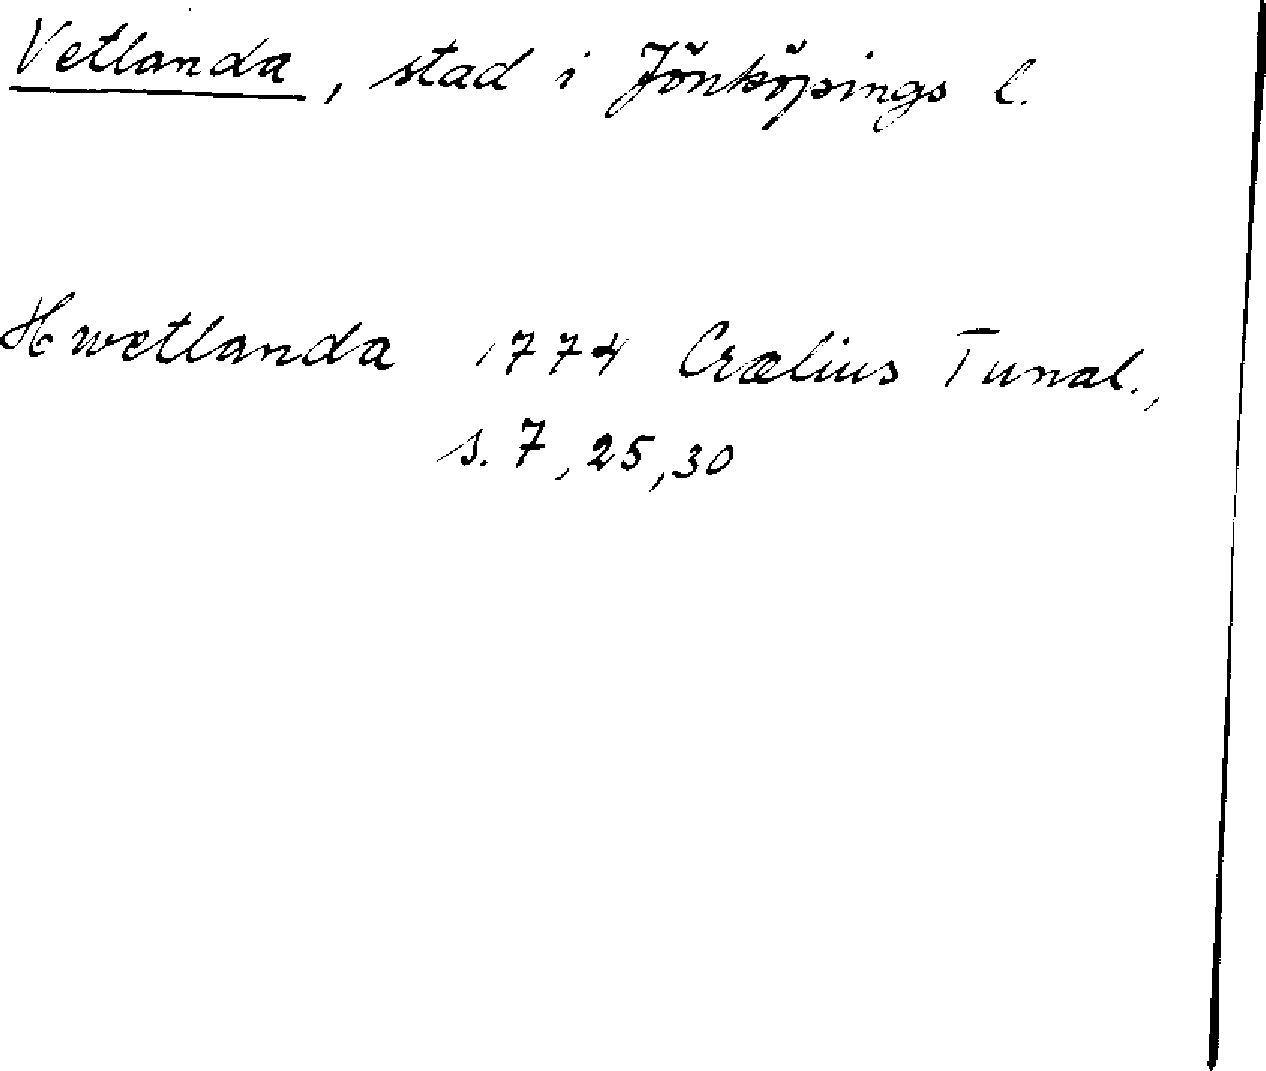 Vetlanda, stad i Jönköpings l.
Hwetlanda 1774 Crælius Tunal.,
s. 7, 25, 30